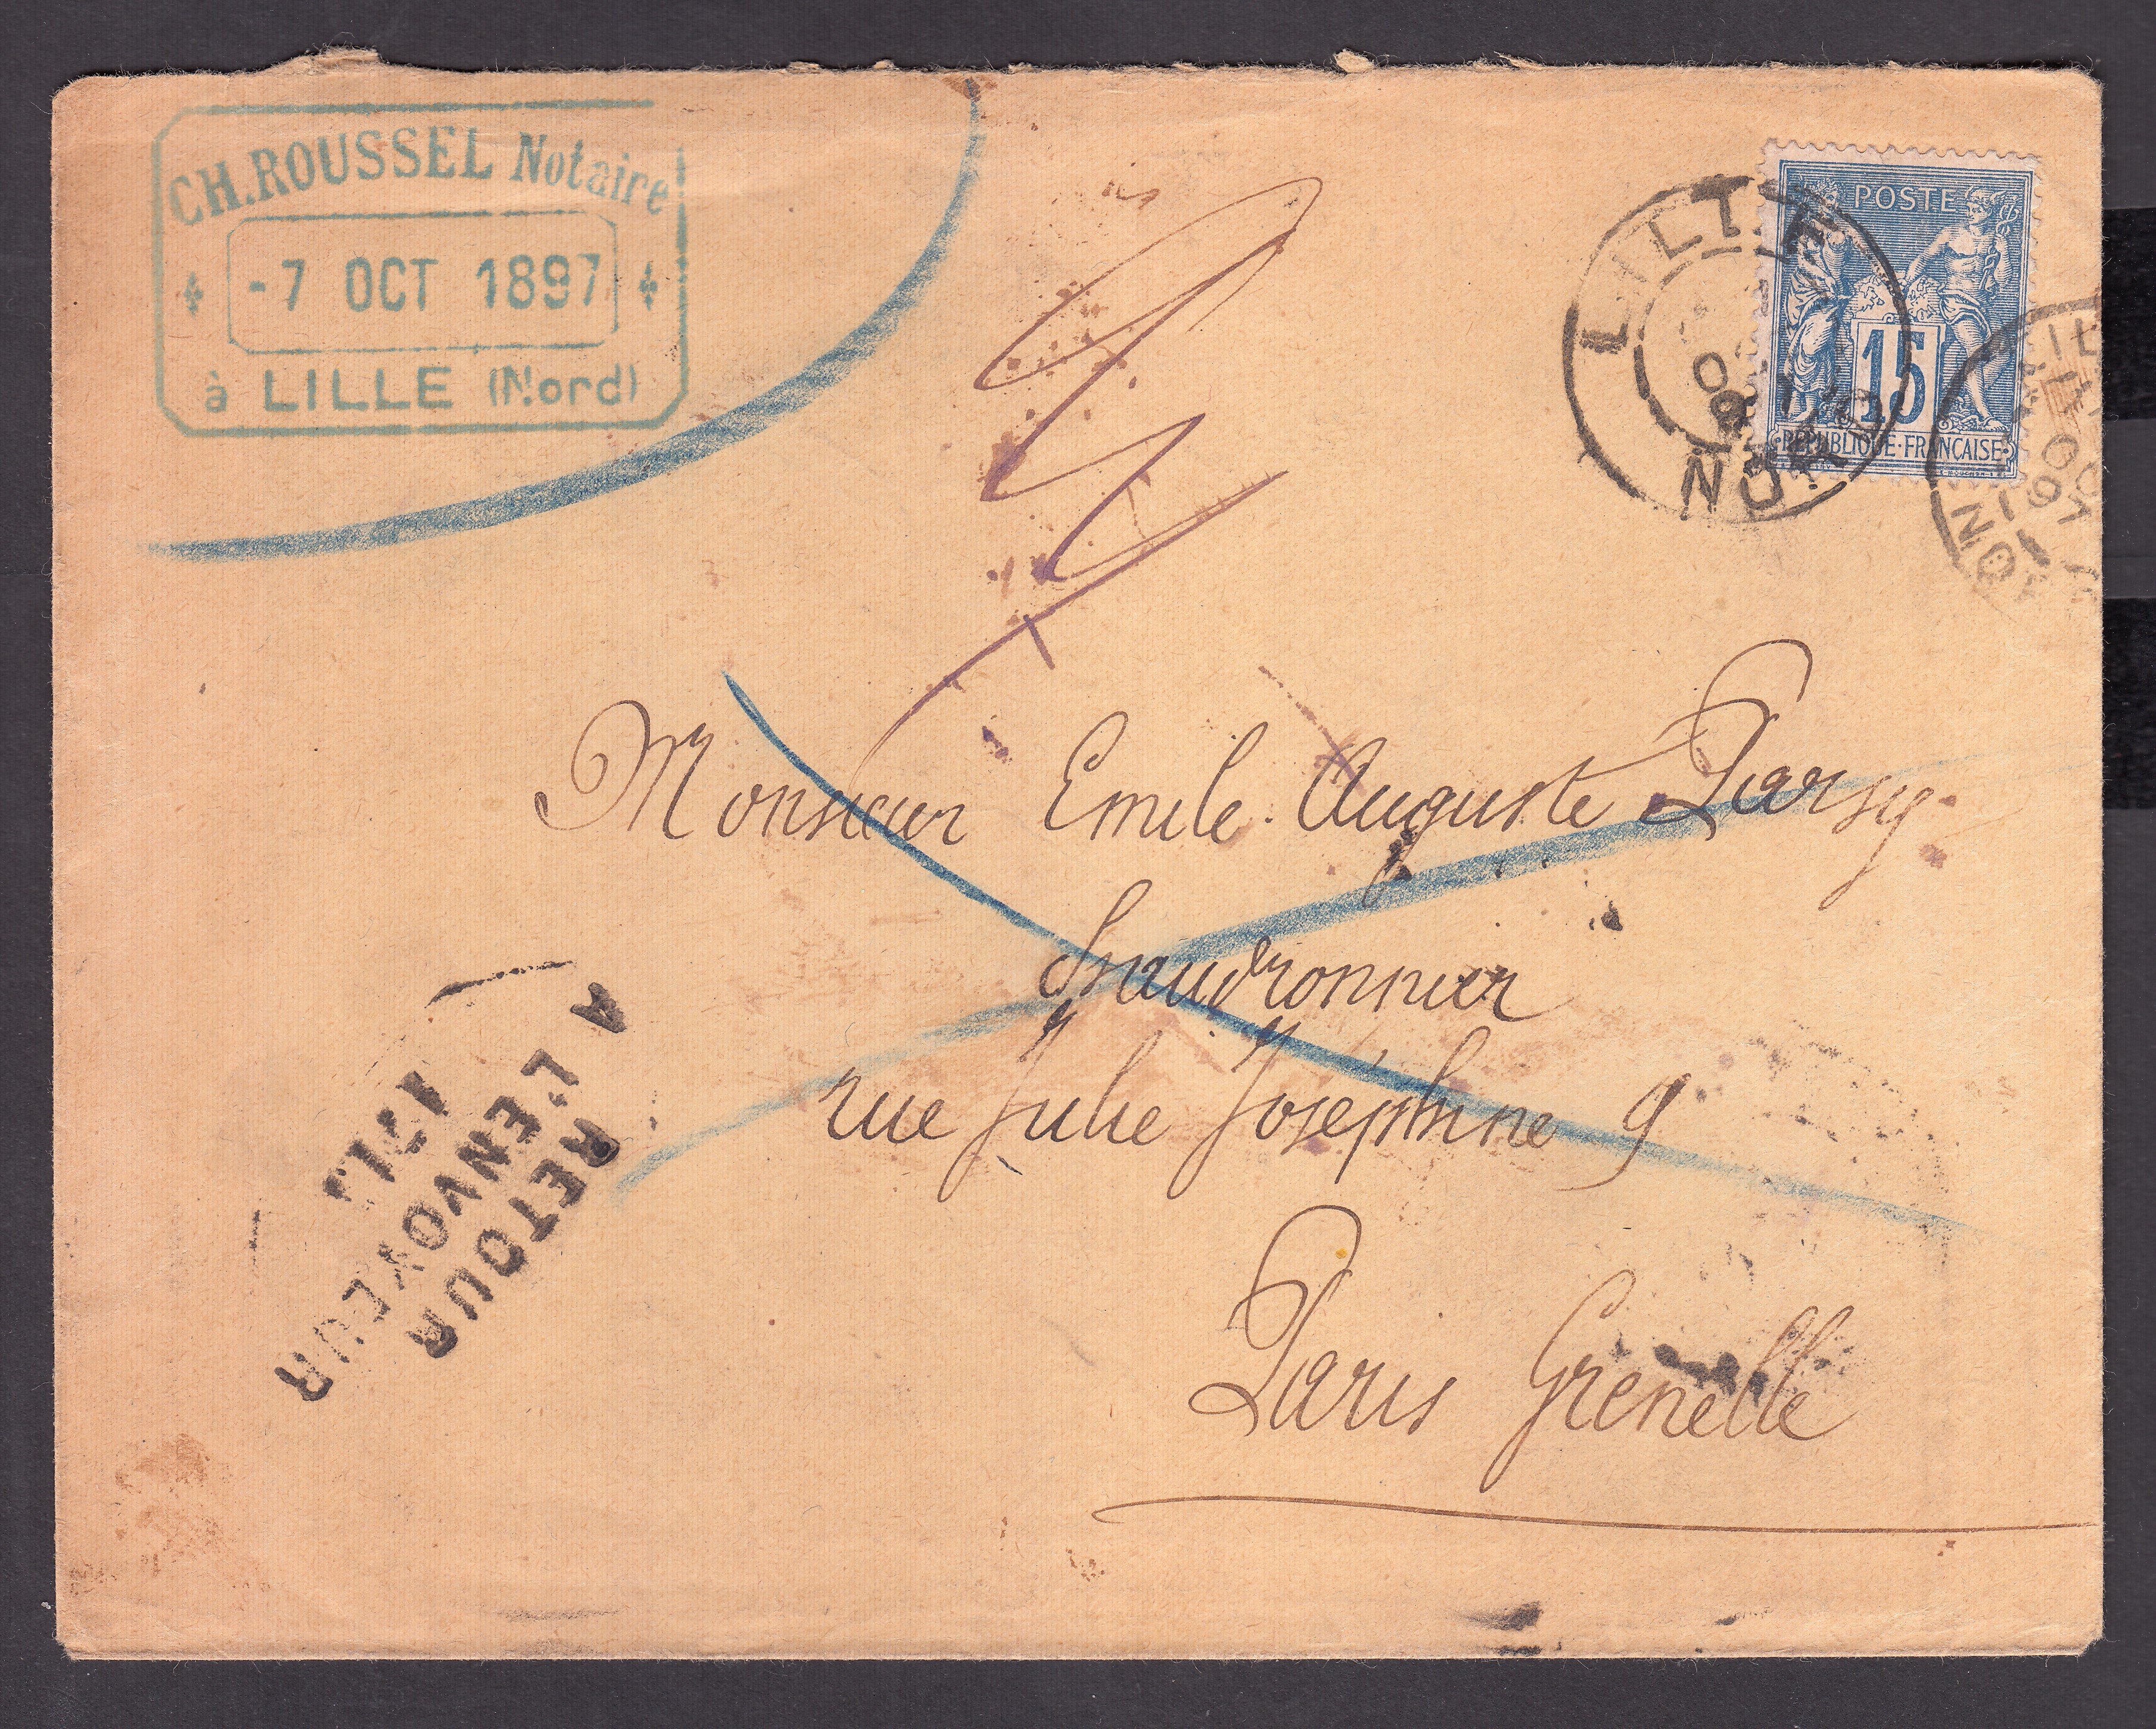 CH. ROUSSEL Notaire
-7 OCT 1897
à LILLE (Nord)
POSTE
15
REPUBLIQUE·FRANÇAISE
LILLE
NORD
OC
97
Monsieur Emile Auguste Parsy
Chaudronnier
rue Julie Joséphine 9
Paris Grenelle
RETOUR
A L'ENVOYEUR